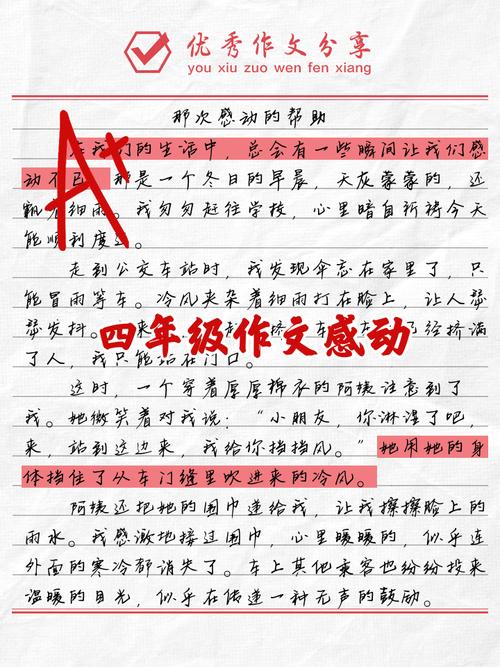 优秀作文分享
you xiu zuo wen fen xiang
那次感动的帮助
A+
我们的生活中，总会有一些瞬间让我们感
动不已。那是一个冬日的早晨，天灰蒙蒙的，还
飘 细雨。我匆匆赶往学校，心里暗自祈祷今天
能顺利度过。
走到公交车站时，我发现伞忘在家里了，只
能冒雨等车。冷风夹杂着细雨打在脸上，让人瑟
瑟发抖。 来 车 经挤满
四年级作文感动
了人，我只能站在门口。
这时，一个穿着厚厚棉衣的阿姨注意到了
我。她微笑着对我说：“小朋友，你淋湿了吧，
来，站到这边来，我给你挡挡风。”她用她的身
体挡住了从车门缝里吹进来的冷风。
阿姨还把她的围巾递给我，让我擦擦脸上的
雨水。我感激地接过围巾，心里暖暖的，似乎连
外面的寒冷都消失了。车上其他乘客也纷纷投来
温暖的目光，似乎在传递一种无声的鼓励。